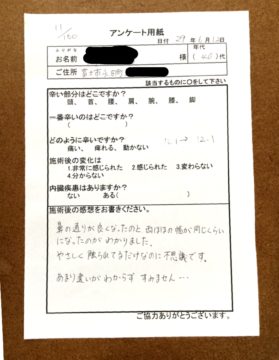 アンケート用紙
日付 29年6月12日
ふりがな
お名前 様
年代
(40代)
ご住所
該当するものに○をして下さい
辛い部分はどこですか?
頭、首、腰、肩、腕、膝、脚
一番辛いのはどこですか?
( )
どのように辛いですか?
痛い、痺れる、動かない
施術後の変化は
1.非常に感じられた 2.感じられた 3.変わらない
4.分からない
内臓疾患はありますか?
ない ある( )
施術後の感想をお書きください。
鼻の通りが良くなったのと 両ほほの幅が同じくらい
になったのがわかりました。
やさしく触られてるだけなのに不思議です。
あまり違いがわからず すみません…
ご協力ありがとうございます。